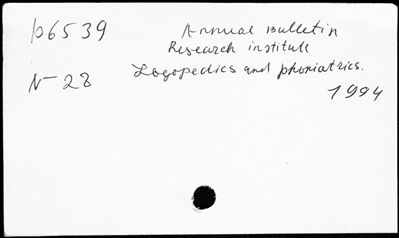 p6539
Annual Bulletin
Research institute
N-28
Logopedics and phoniatrics.
1994